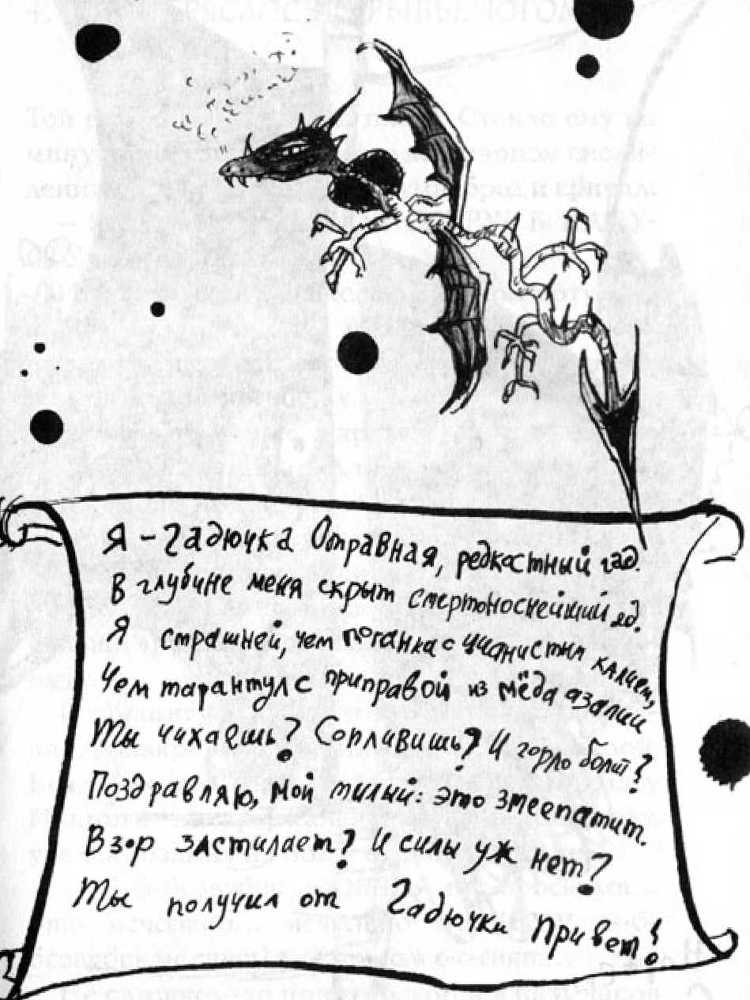 Я - гадючка Отравная, редкостный гад.
В глубине меня скрыт смертоноснейший яд.
Я страшней, чем поганка с цианистым калием,
Чем тарантул с приправой из мёда азалии
Ты чихаешь? Сопливишь? И горло болит?
Поздравляю, мой милый: это змеепатит.
Взор застилает? И силы уж нет?
Ты получил от Гадючки Привет!